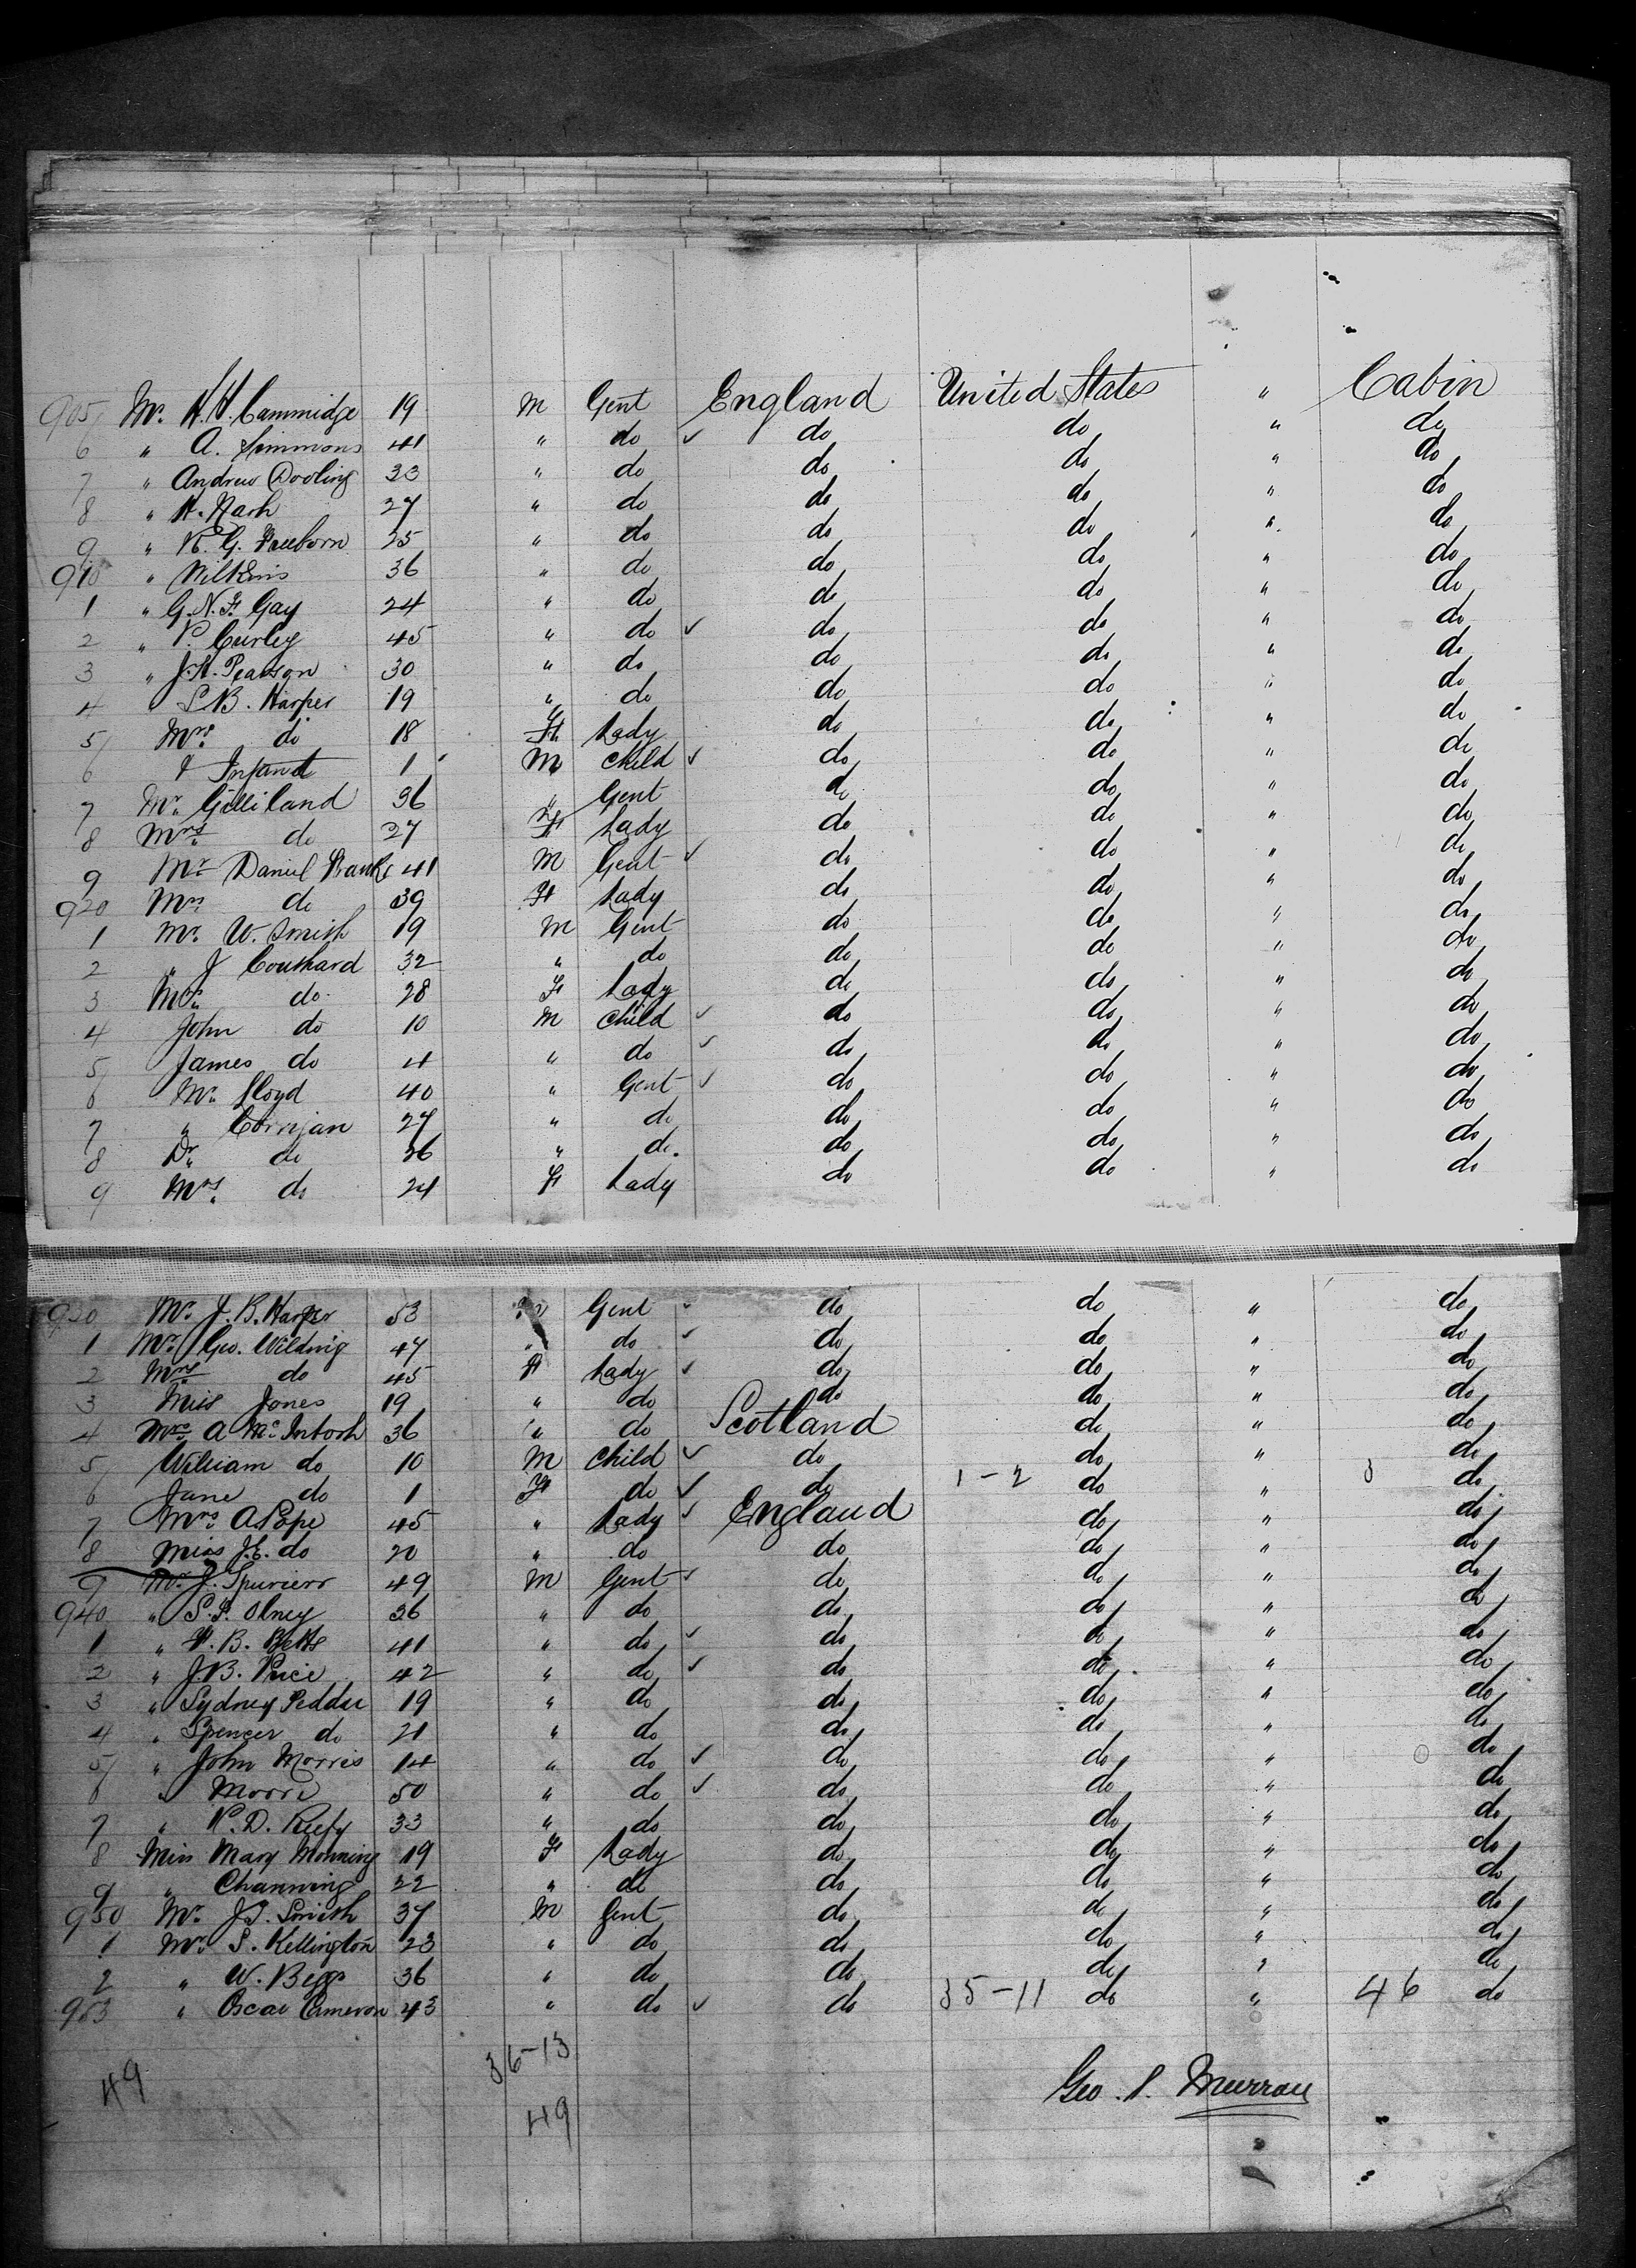 905 Mr. H. H. Cammidge 19 m Gent England United States " Cabin
6 " A. Simmons 41 " do ✓ do do " do
7 " Andrew Dooling 33 " do do do " do
8 " H. Nash 27 " do do do " do
9 " R. G. Freeborn 25 " do do do " do
910 " Wilkins 36 " do do do " do
1 " G. N. F. Gay 24 " do do do " do
2 " P. Curley 45 " do ✓ do do " do
3 " J. H. Pearson 30 " do do do " do
4 " S B. Harper 19 " do do do " do
5 Mrs. do 18 F Lady do do " do
6 & Infant 1 m Child ✓ do do " do
7 Mr. Gilliland 36 " Gent do do " do
8 Mrs do 27 F Lady do do " do
9 Mr Daniel Banks 41 m Gent ✓ do do " do
920 Mrs do 39 F Lady do do " do
1 Mr. W. Smith 19 m Gent do do " do
2 " J Couthard 32 " do do do " do
3 Mrs. do 28 F Lady do do " do
4 John do 10 m Child ✓ do do " do
5 James do 4 " do ✓ do do " do
6 Mr. Lloyd 40 " Gent ✓ do do " do
7 " Corrijan 27 " do do do " do
8 Dr. do 36 " do. do do " do
9 Mrs. do 24 F Lady do do " do
930 Mr. J. B. Harper 53 Gent do do " do
1 Mr. Geo. Wilding 47 " do ✓ do do " do
2 Mrs do 45 F Lady ✓ do do " do
3 Miss Jones 19 " do do do " do
4 Mrs. A McIntosh 36 " do Scotland do " do
5 William do 10 m Child ✓ do do " do
6 Jane do 1 F do ✓ do 1-2 do " 3 do
7 Mrs A Pope 45 " Lady ✓ England do " do
8 Miss J. E. do 20 " do do do " do
9 Mr. J. Spurierr 49 m Gent ✓ do do " do
940 " S. F. Olney 36 " do do do " do
1 " H. B. Betts 41 " do ✓ do do " do
2 " J. B. Price 42 " do ✓ do do " do
3 " Sydney Peddie 19 " do do do " do
4 " Spencer do 21 " do do do " do
5 " John Morris 14 " do ✓ do do " do
6 " Morris 50 " do ✓ do do " do
7 " D. 33 " do do do " do
8 Miss Mary Manning 19 F Lady do do " do
9 " Channing 22 " do do do " do
950 Mr. J. Smith 37 m Gent do do " do
1 Mr. S. Kellington 23 " do do do " do
2 " W. Beggs 36 " do do do " do
953 " Oscar Cameron 43 " do ✓ do 35-11 do " 46 do
36-13
49 49
Geo. S. Murray